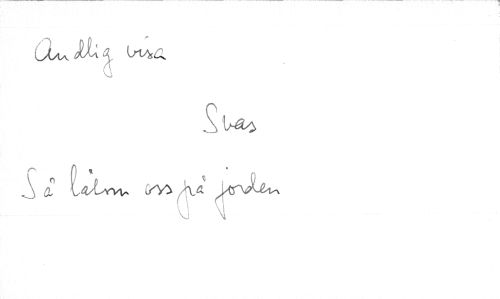 Andlig visa
Svas
Så låtom oss på jorden